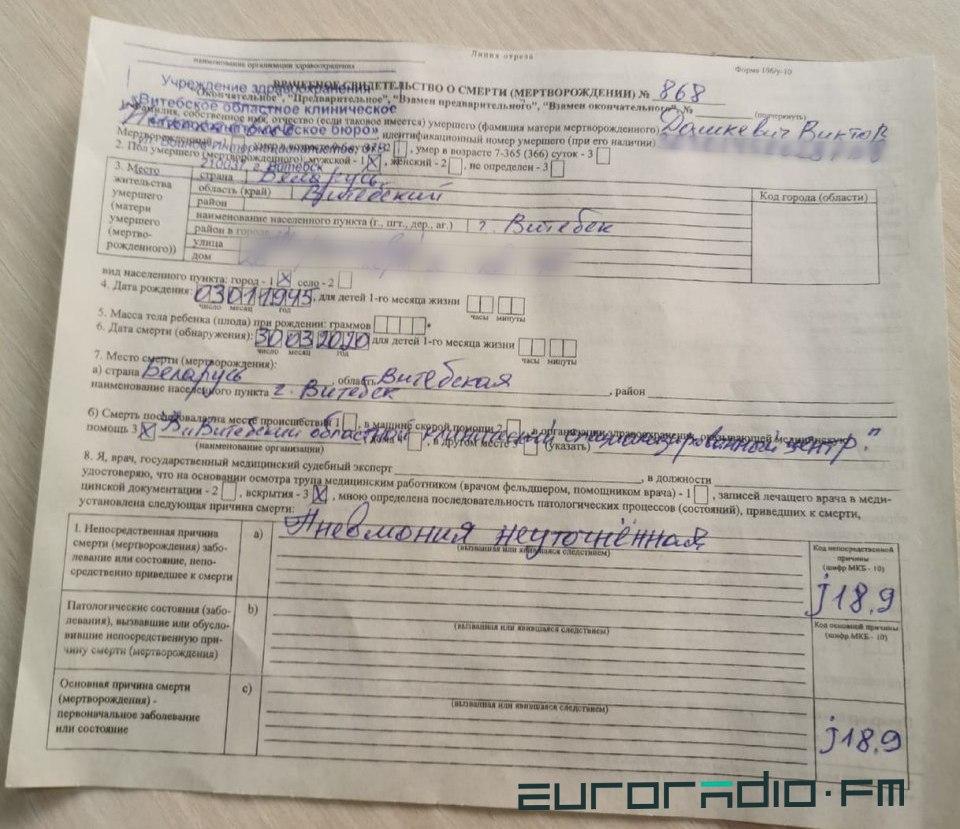 Линия отреза
наименование организации здравоохранения
Форма 106/у-10
Учреждение здравоохранения
ВРАЧЕБНОЕ СВИДЕТЕЛЬСТВО О СМЕРТИ (МЕРТВОРОЖДЕНИИ) № 868
"Окончательное", "Предварительное", "Взамен предварительного", "Взамен окончательного" №
(подчеркнуть)
«Витебское областное клиническое
Фамилия, собственное имя, отчество (если таковое имеется) умершего (фамилия матери мертворожденного) Дашкевич Виктор
бюро»
идентификационный номер умершего (при его наличии)
Мертворожденный
, умер в возрасте 7-365 (366) суток - 3
2. Пол умершего (мертворожденного): мужской - 1 X, женский - 2 , не определен - 3
210037, г. Витебск
3. Место жительства умершего (матери умершего (мертворожденного))
страна Беларусь
область (край) Витебский
район
наименование населенного пункта (г., пгт., дер., аг.) г. Витебск
район в городе
улица
дом
Код города (области)
вид населенного пункта: город - 1 X село - 2
4. Дата рождения: 03011945, для детей 1-го месяца жизни
число месяц год
часы минуты
5. Масса тела ребенка (плода) при рождении: граммов
6. Дата смерти (обнаружения): 30032020 для детей 1-го месяца жизни
число месяц год
часы минуты
7. Место смерти (мертворождения):
а) страна Беларусь, область Витебская
наименование населенного пункта г. Витебск, район
б) Смерть последовала: на месте происшествия 1 , в машине скорой помощи 2 , в организации здравоохранения, оказывающей медицинскую
помощь 3 X "Витебский областной клинический специализированный центр"
(наименование организации)
, в другом месте 5 (указать)
8. Я, врач, государственный медицинский судебный эксперт , в должности
удостоверяю, что на основании осмотра трупа медицинским работником (врачом фельдшером, помощником врача) - 1 , записей лечащего врача в меди-
цинской документации - 2 , вскрытия - 3 X, мною определена последовательность патологических процессов (состояний), приведших к смерти,
установлена следующая причина смерти:
I. Непосредственная причина
смерти (мертворождения) забо-
левание или состояние, непо-
средственно приведшее к смерти
a) Пневмония неуточнённая
(вызванная или явившаяся следствием)
Код непосредственной
причины
(шифр МКБ - 10)
j18.9
Патологические состояния (забо-
левания), вызвавшие или обусло-
вившие непосредственную при-
чину смерти (мертворождения)
b)
(вызванная или явившаяся следствием)
Код основной причины
(шифр МКБ - 10)
Основная причина смерти
(мертворождения) -
первоначальное заболевание
или состояние
c)
(вызванная или явившаяся следствием)
j18.9
EURORADIO.FM